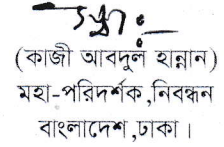 (কাজী আবদুল হান্নান)
মহা-পরিদর্শক,নিবন্ধন
বাংলাদেশ,ঢাকা।